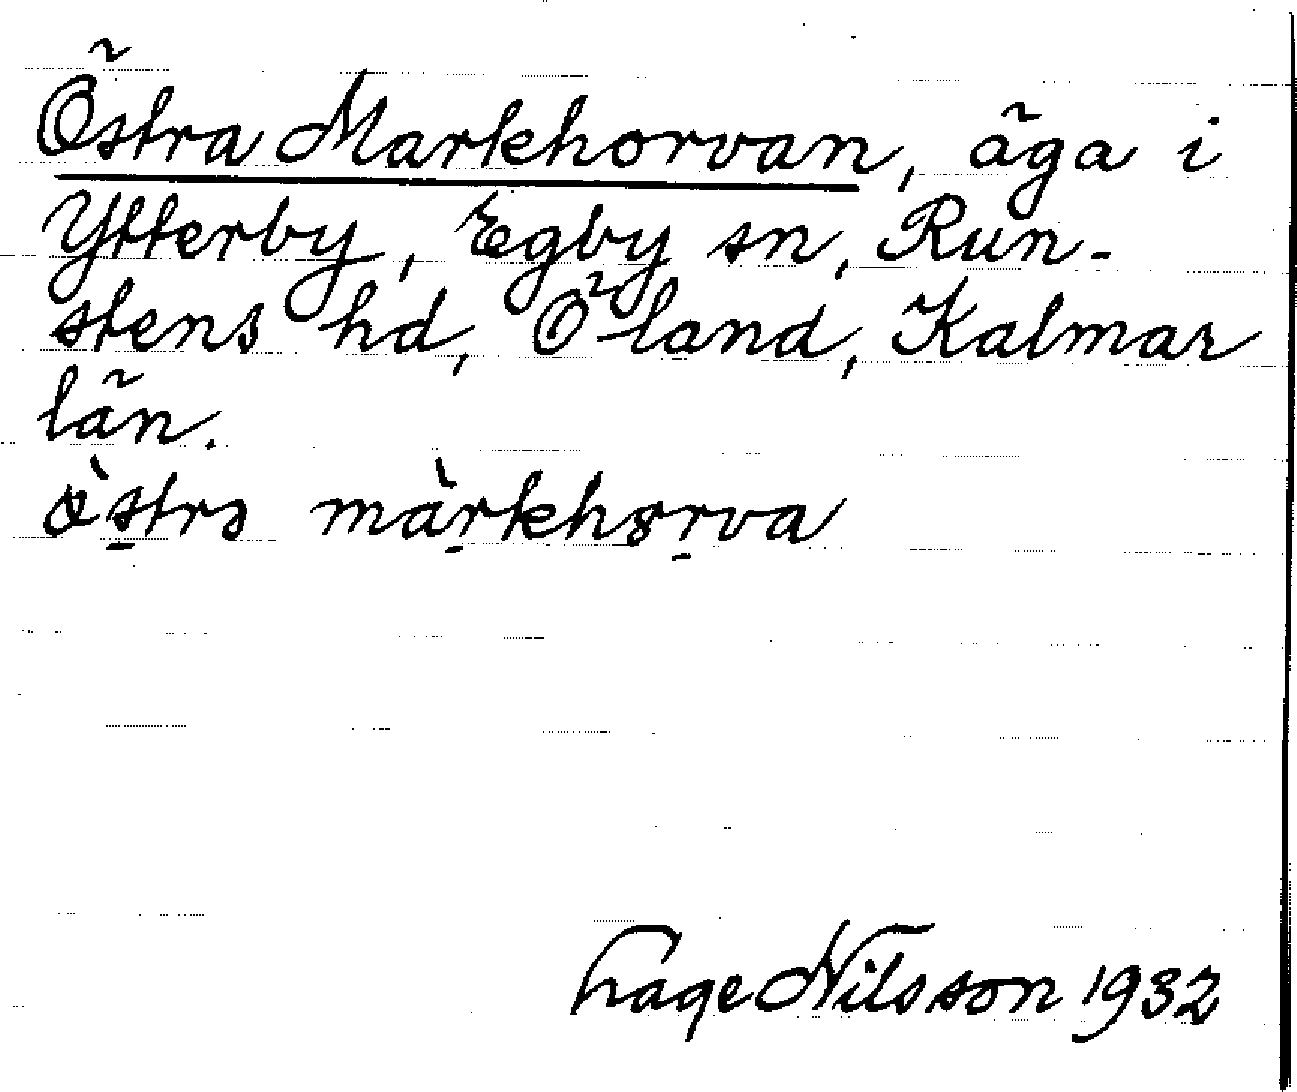 Östra Markhorvan, äga i
Ytterby, Egby sn, Run-
stens hd, Öland, Kalmar
län.
östrs màrkhorva
Hage Nilsson 1932